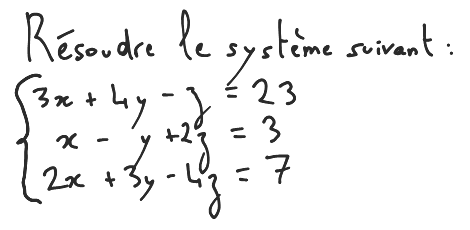 Résoudre le système suivant :
3x + 4y - z = 23
x - y + 2z = 3
2x + 3y - 4z = 7